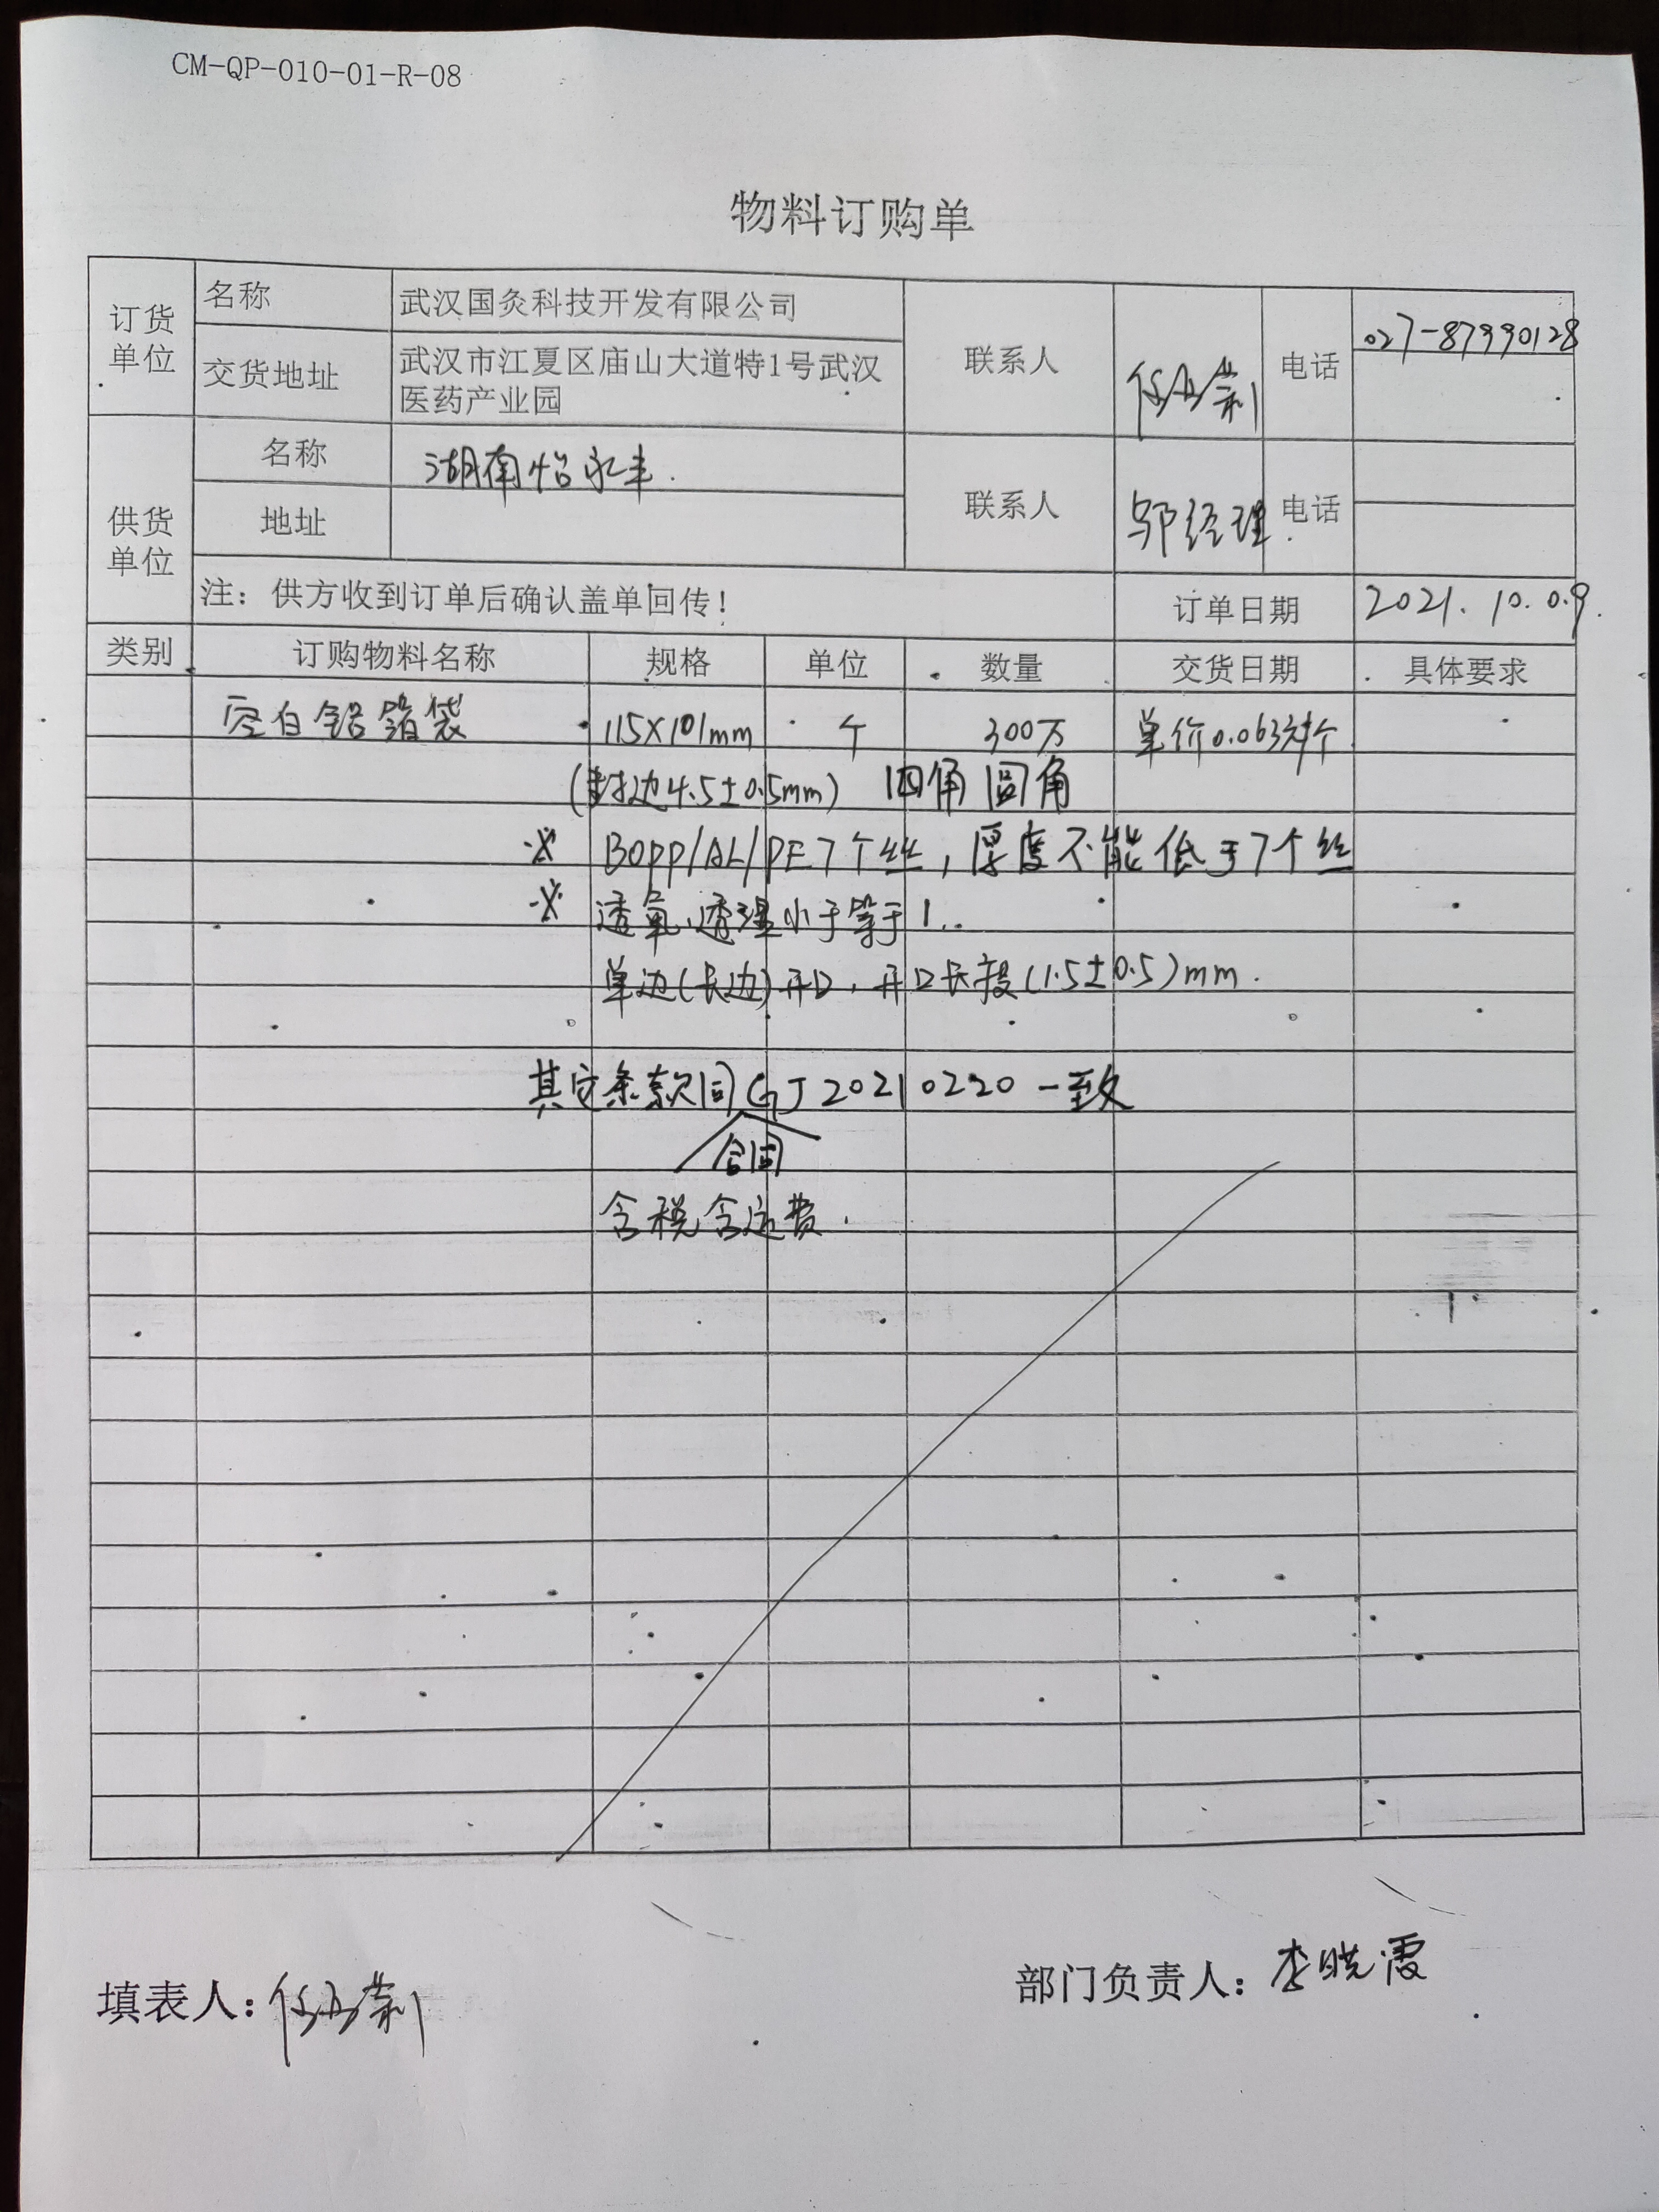 CM-QP-010-01-R-08
物料订购单
订货单位
名称
武汉国灸科技开发有限公司
交货地址
武汉市江夏区庙山大道特1号武汉
医药产业园
联系人
电话
027-87990128
供货单位
名称
湖南怡永丰.
地址
联系人
邬经理.
电话
注：供方收到订单后确认盖单回传！
订单日期
2021.10.09.
类别 订购物料名称 规格 单位 数量 交货日期 具体要求
空白铝箔袋 115×101mm 个 300万 单价0.063元/个
(封边4.5±0.5mm) 四角圆角
※ BOPP/AL/PE7个丝，厚度不能低于7个丝
※ 透氧、透湿小于等于1..
单边(长边)开口，开口长度(1.5±0.5)mm.
其它条款同GJ20210220一致
合同
含税含运费.
填表人：
部门负责人：李晓霞